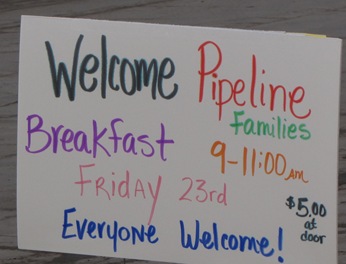 Welcome Pipeline
Families
Breakfast
9-11:00 AM
Friday 23rd
$5.00
at
door
Everyone Welcome!